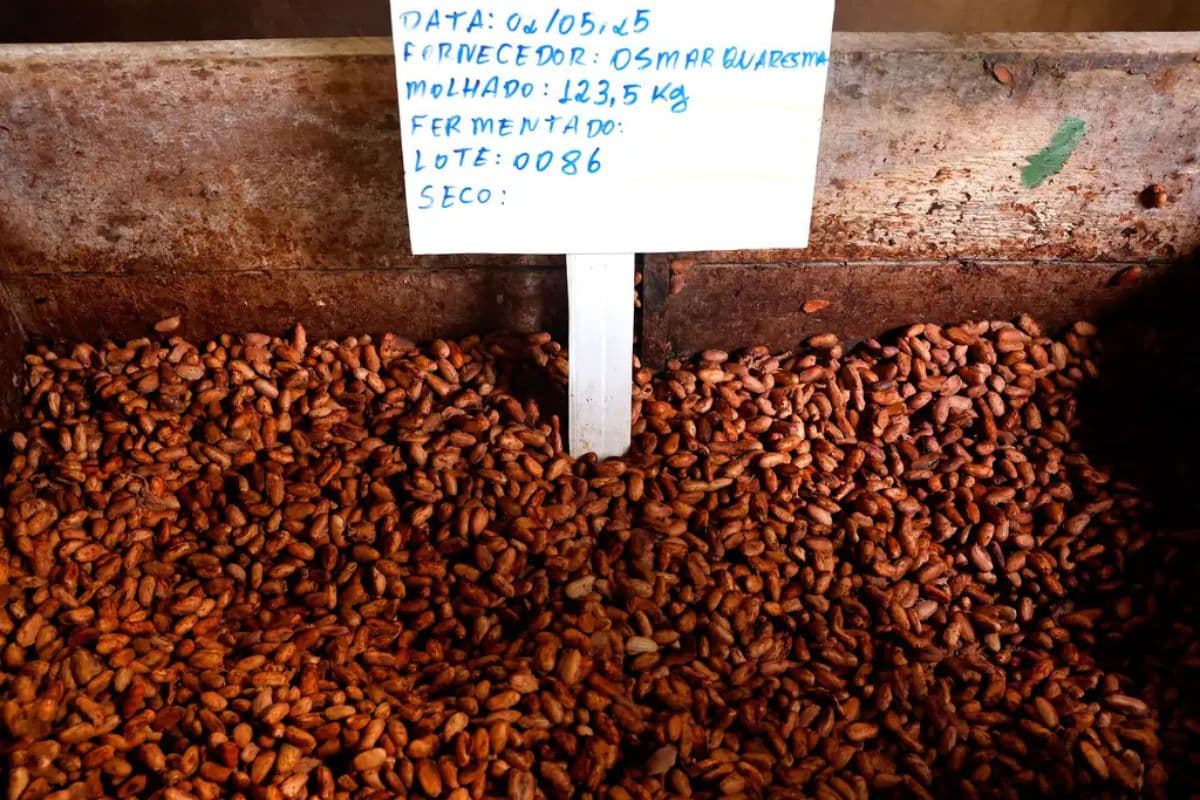 DATA: 02/05.25
FORNECEDOR: OSMAR QUARESMA
MOLHADO: 123,5 Kg
FERMENTADO:
LOTE: 0086
SECO: